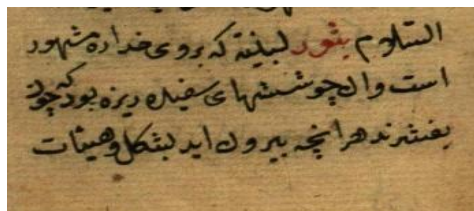 السلام بثور لبنیة که بر روی خدارە مشهور
است وان چون شپشهای سفید ریزه بود که چون
بفشرند هر انچه بیرون اید بشکل و هیئات